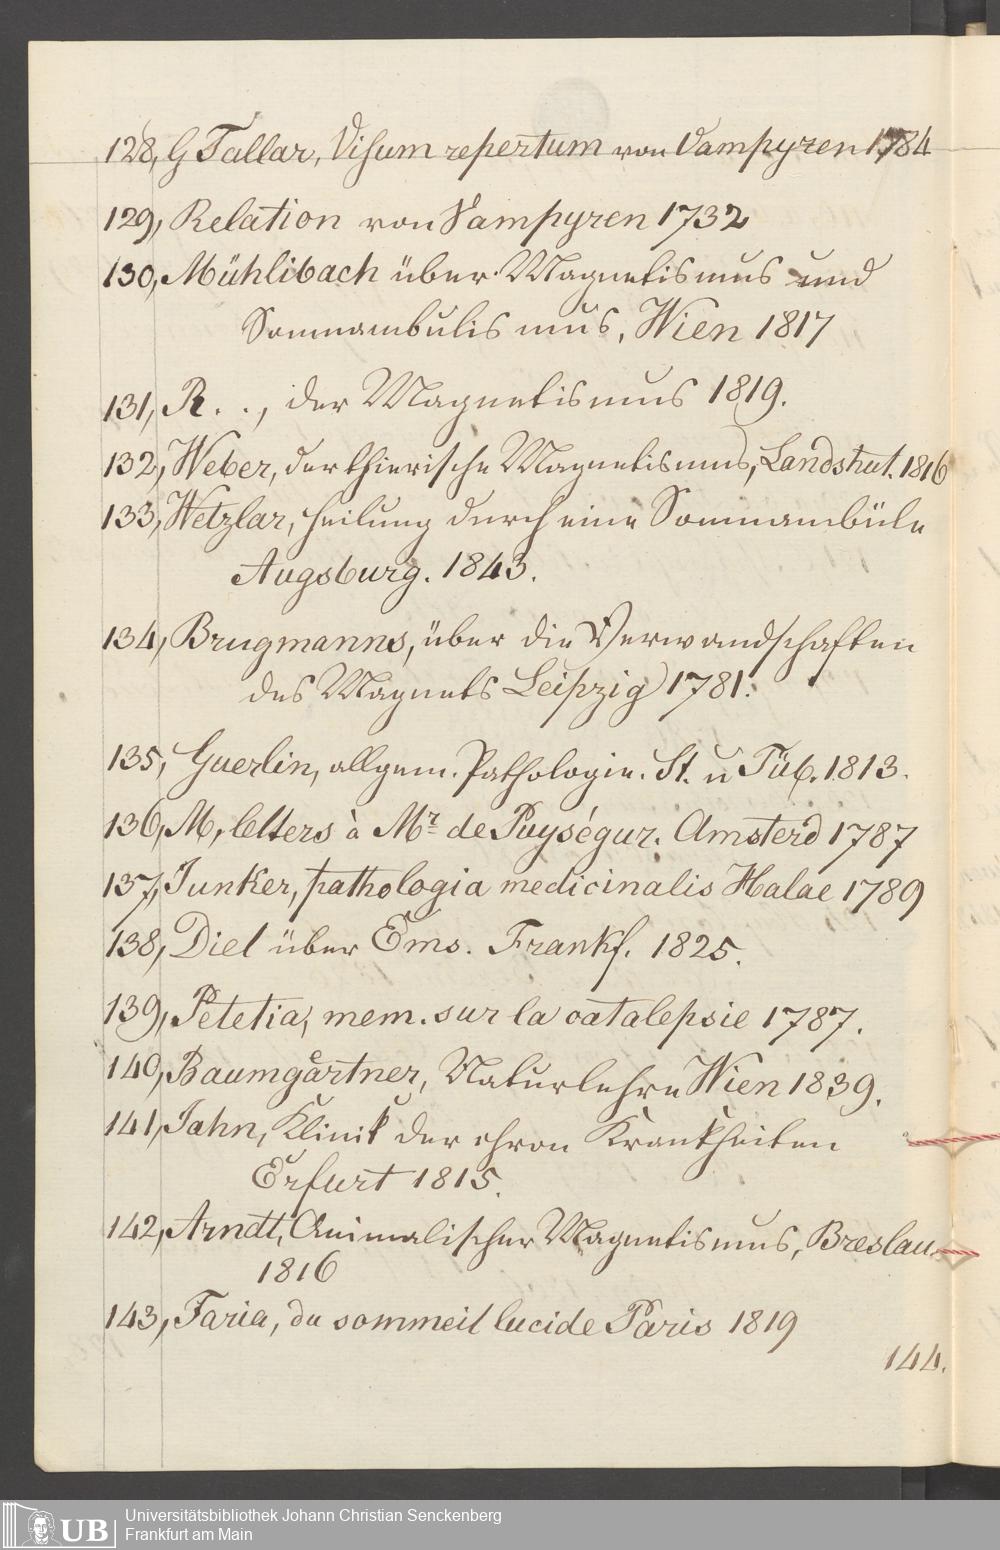 128, G Tallar, Visum repertum von Vampyren 1784
129, Relation von Vampyren 1732
130, Mühlibach über Magnetismus und
Somnambulismus, Wien 1817
131, R. . , der Magnetismus 1819.
132, Weber, der thierische Magnetismus, Landshut. 1816
133, Wetzlar, Heilung durch eine Somnambüle
Augsburg. 1843.
134, Brugmanns, über die Verwandschaften
des Magnets Leipzig 1781.
135, Guerlin, allgem. Pathologie. St. u Tüb. 1813.
136, M, letters à Mr de Puységur. Amsterd 1787
137, Junker, pathologia medicinalis Halae 1789
138, Diel über Ems. Frankf. 1825.
139, Petetia, mem. sur la catalepsie 1787.
140, Baumgärtner, Naturlehre Wien 1839.
141, Jahn, Klinik der chron Krankheiten
Erfurt 1815.
142, Arndt, Animalischer Magnetismus, Breslau.
1816
143, Faria, du sommeil lucide Paris 1819
144.
UB Universitätsbibliothek Johann Christian Senckenberg
Frankfurt am Main